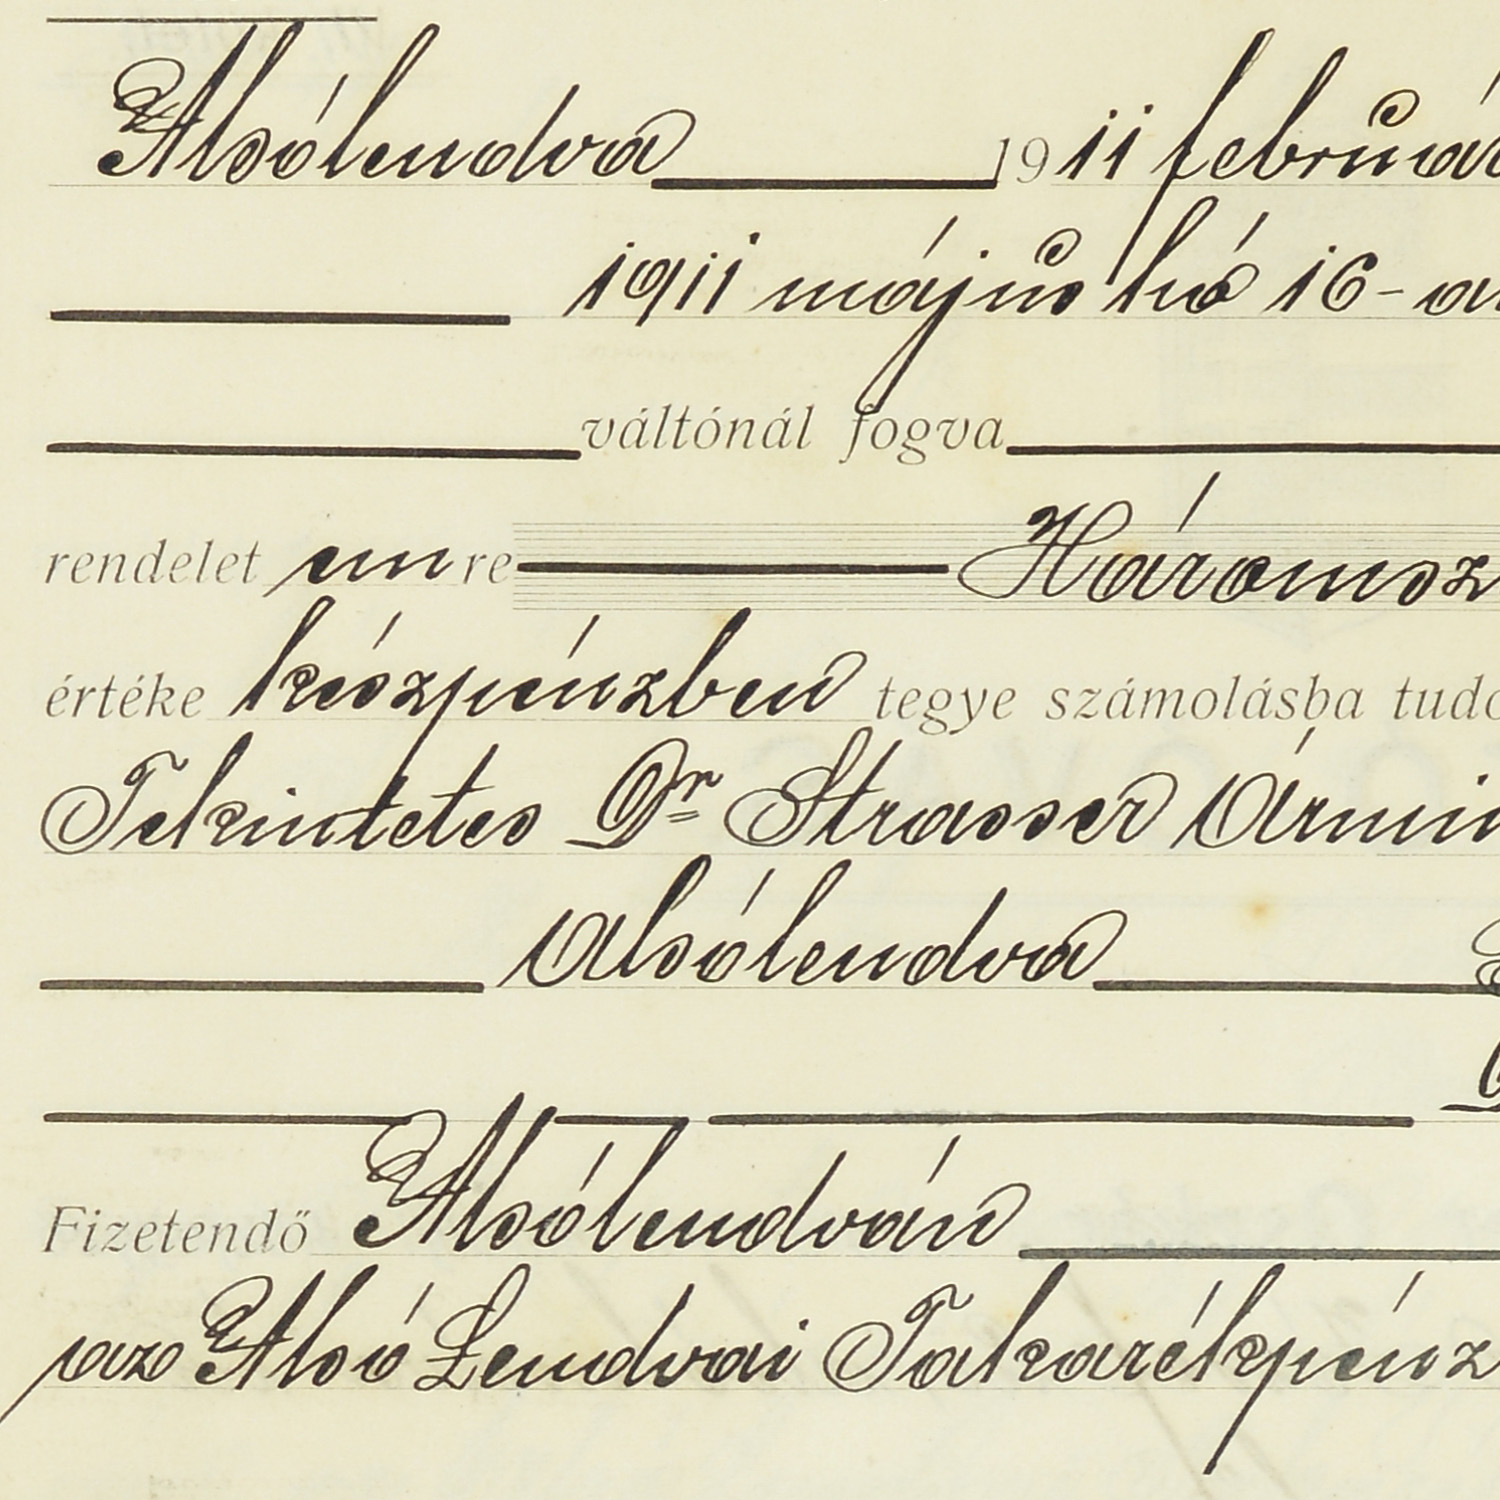 Alsólendva 1911 februá
1911 május hó 16-a
váltónál fogva
rendelet em re Háromsz
értéke készpénzben tegye számolásba tudo
Tekintetes Dr Strasser Ármin
Alsólendva
Fizetendő Alsólendván
az Alsó Lendvai Takarékpénz